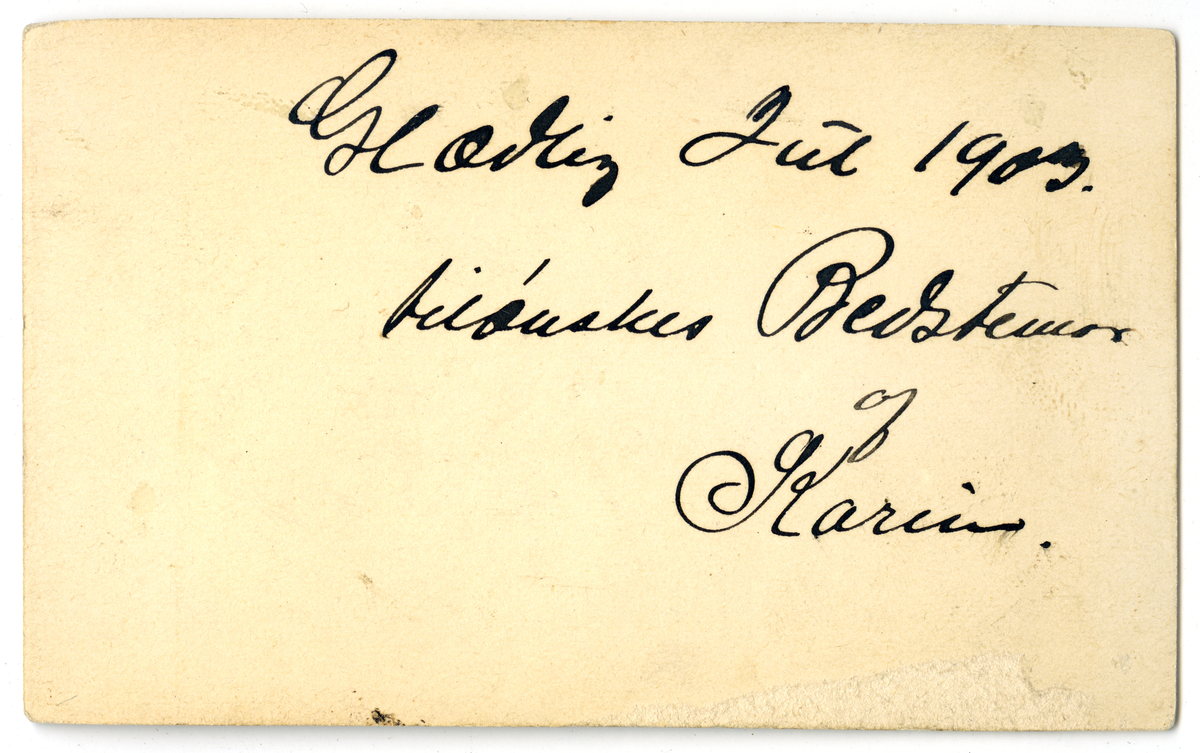 Glædlig Jul 1903.
tilønskes Bedstemor
af
Karin.